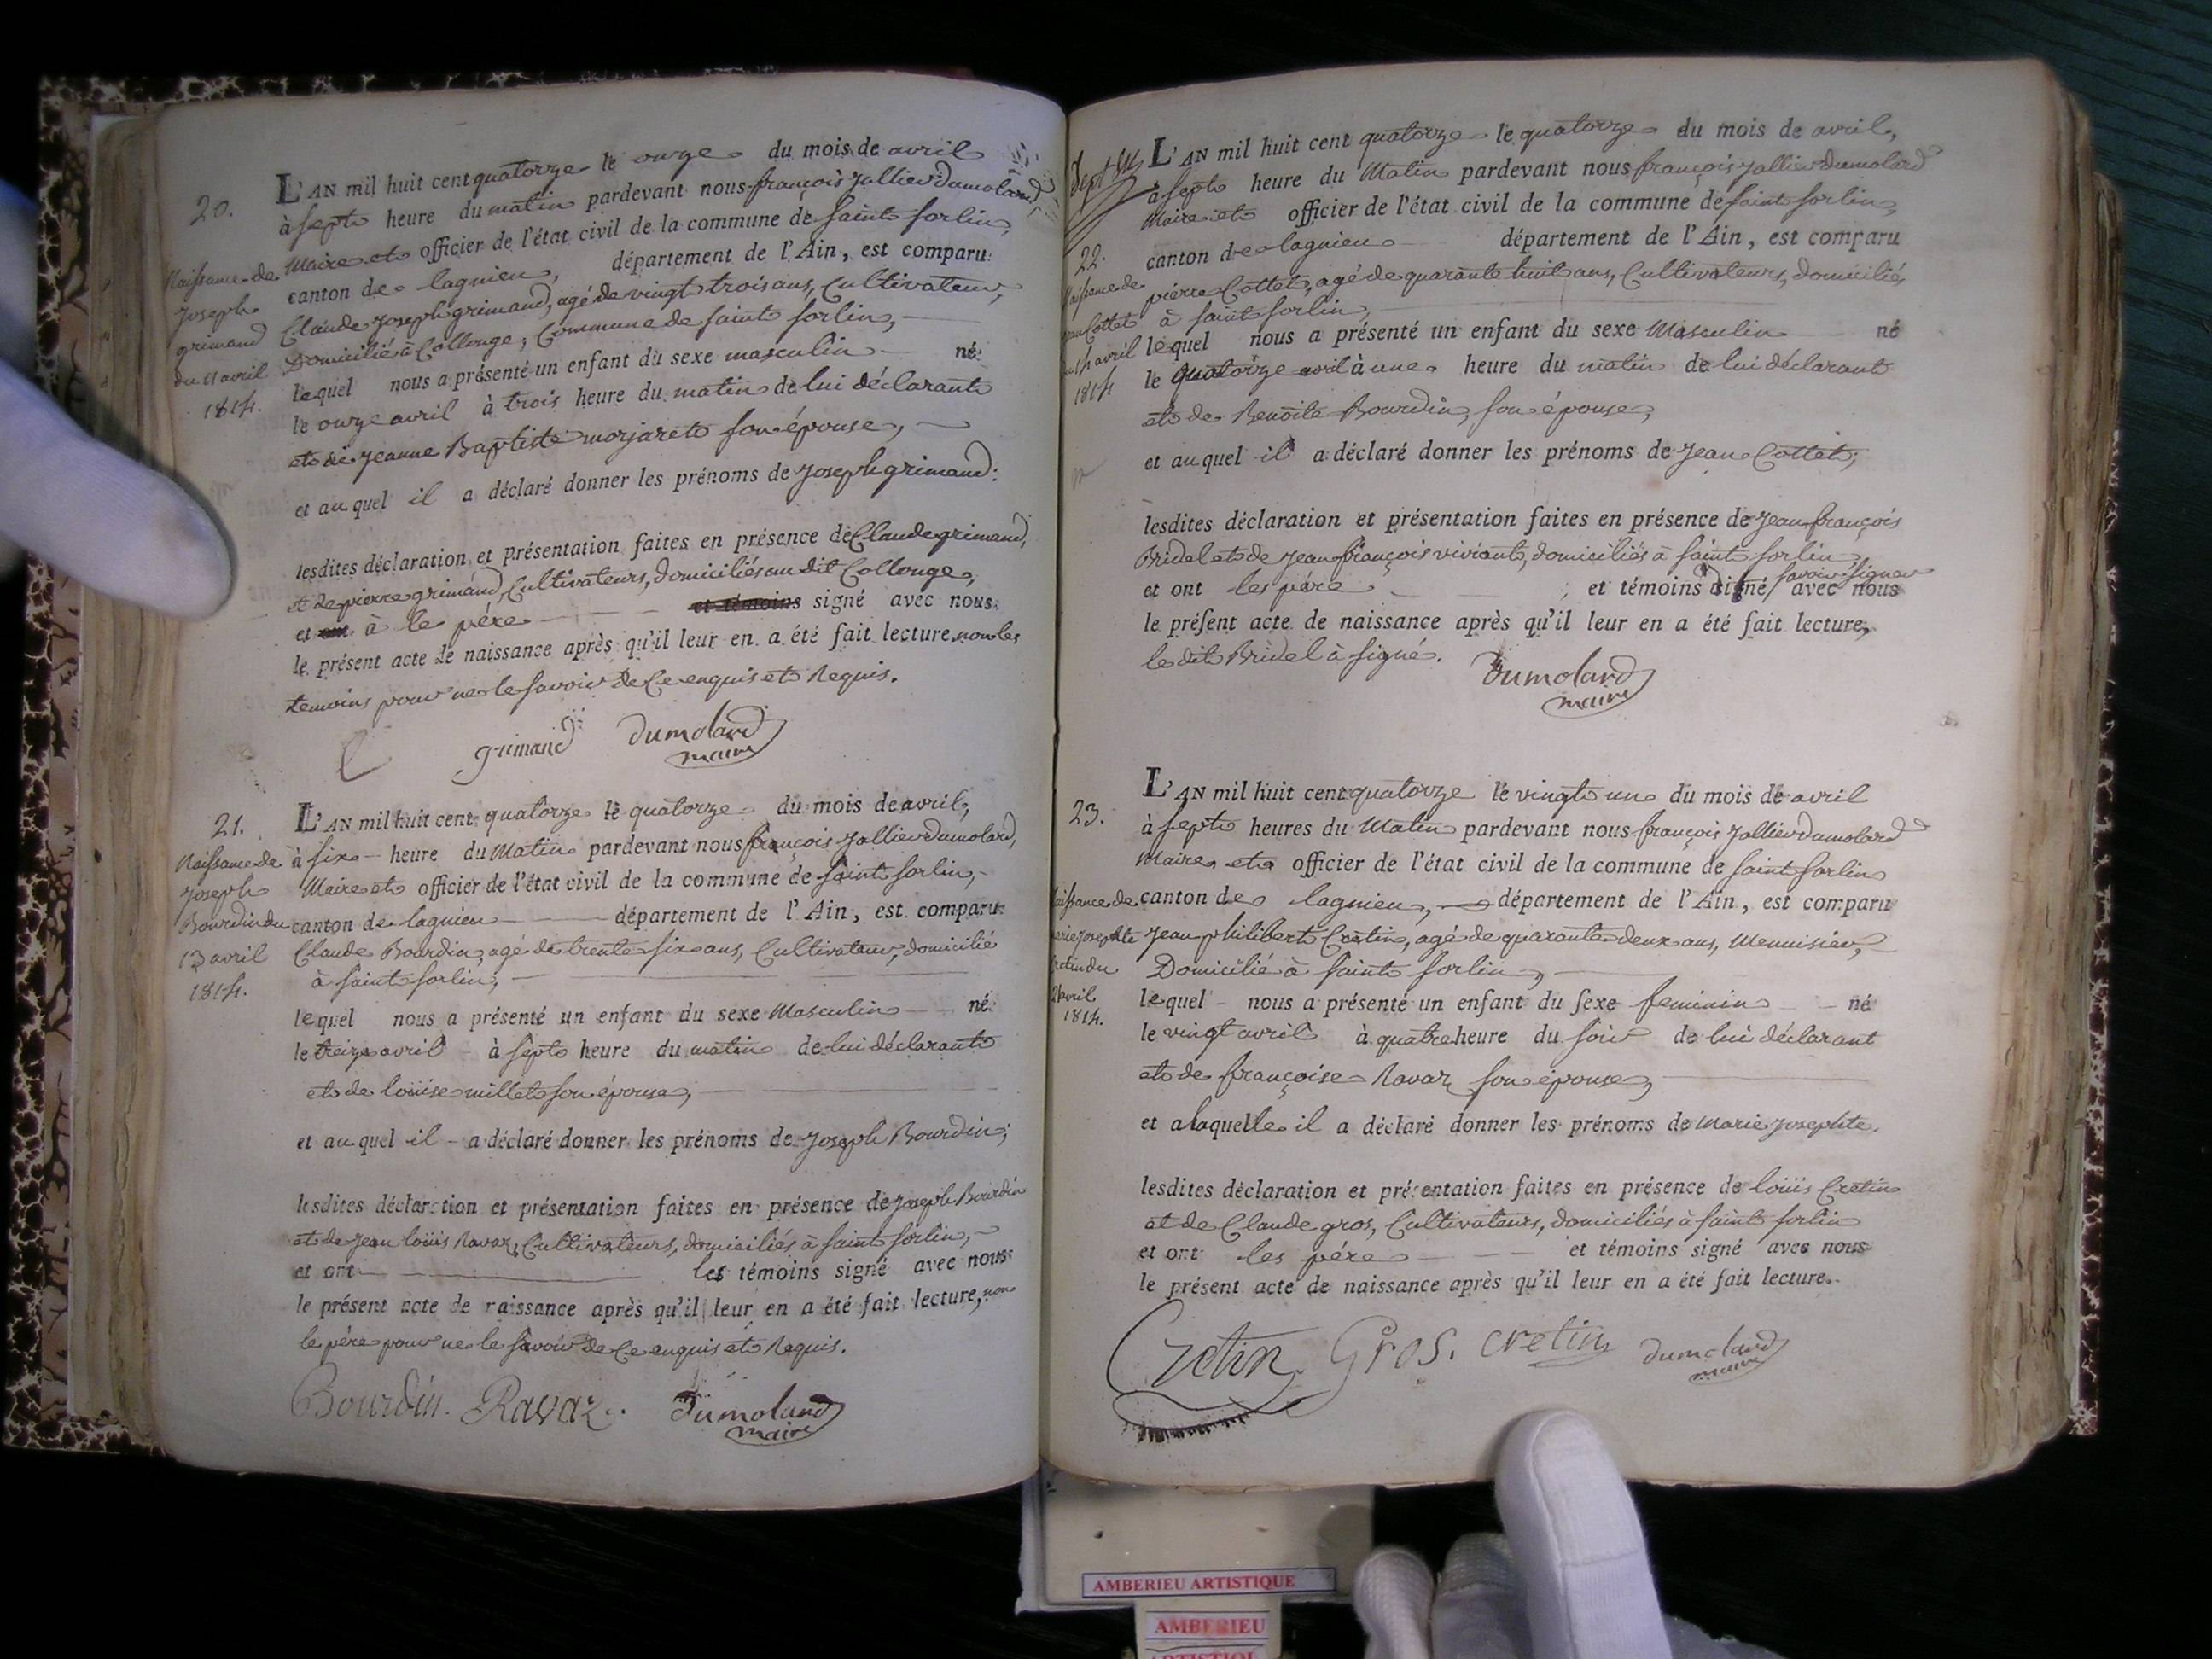 20.
Naissance de
Joseph
grimand
du 11 avril
1814.
L'AN mil huit cent quatorze le onze du mois de avril
à sept heure du matin pardevant nous françois Jallier Dumolard,
Maire et officier de l'état civil de la commune de saint sorlin,
canton de lagnieu, département de l'Ain, est comparu
Claude Joseph grimand, agé de vingt trois ans, Cultivateur,
Domicilié à Collonge, Commune de saint sorlin,
lequel nous a présenté un enfant du sexe masculin né
le onze avril à trois heure du matin de lui déclarant
et de Jeanne Baptiste morjaret son épouse,
et auquel il a déclaré donner les prénoms de Joseph grimand:
lesdites déclaration et présentation faites en présence de Claude grimand,
et de pierre grimand, Cultivateurs, domiciliés au dit Collonge,
et ont à le père et témoins signé avec nous
le présent acte de naissance après qu'il leur en a été fait lecture, non les
temoins pour ne le savoir de Ce enquis et Requis.
grimand Dumolard
maire
21.
Naissance de
Joseph
Bourdin du
13 avril
1814.
L'AN mil huit cent quatorze le quatorze du mois de avril,
à six heure du Matin pardevant nous françois Jallier Dumolard,
Maire et officier de l'état civil de la commune de saint sorlin,
canton de lagnieu département de l'Ain, est comparu
Claude Bourdin, agé de trente six ans, Cultivateur, domicilié
à saint sorlin,
lequel nous a présenté un enfant du sexe Masculin né
le treize avril à sept heure du matin de lui déclarant
et de loüise millet son épouse,
et auquel il a déclaré donner les prénoms de Joseph Bourdin;
lesdites déclaration et présentation faites en présence de Joseph Bourdin
et de Jean loüis Ravaz, Cultivateurs, domiciliés à saint sorlin,
et ont les témoins signé avec nous
le présent acte de naissance après qu'il leur en a été fait lecture, non
le père pour ne le savoir de Ce enquis et Requis.
Bourdin. Ravaz. Dumolard
maire
22.
Naissance de
jean Cottet
du 14 avril
1814
L'AN mil huit cent quatorze le quatorze du mois de avril,
à sept heure du Matin pardevant nous françois Jallier Dumolard
Maire et officier de l'état civil de la commune de saint sorlin,
canton de lagnieu département de l'Ain, est comparu
pierre Cottet, agé de quarante huit ans, Cultivateurs, domicilié
à saint sorlin,
lequel nous a présenté un enfant du sexe Masculin né
le quatorze avril à une heure du matin de lui déclarant
et de Benoite Bourdin, son épouse,
et auquel il a déclaré donner les prénoms de Jean Cottet;
lesdites déclaration et présentation faites en présence de Jean françois
Bridel et de Jean françois viviant, domiciliés à saint sorlin,
savoir signer
et ont les père et témoins signé avec nous
le présent acte de naissance après qu'il leur en a été fait lecture,
le dit Bridel à signé.
Dumolard
maire
23.
Naissance de
marie Josephte
Cretin du
21 avril
1814.
L'AN mil huit cent quatorze le vingt une du mois de avril
à sept heures du Matin pardevant nous françois Jallier Dumolard
Maire et officier de l'état civil de la commune de saint sorlin
canton de lagnieu, département de l'Ain, est comparu
Jean philibert Cretin, agé de quarante deux ans, Menuisier,
Domicilié à saint sorlin,
lequel nous a présenté un enfant du sexe feminin né
le vingt avril à quatre heure du soir de lui déclarant
et de françoise Ravaz son épouse,
et a laquelle il a déclaré donner les prénoms de Marie Josephte.
lesdites déclaration et présentation faites en présence de loüis Cretin
et de Claude gros, Cultivateurs, domiciliés à saint sorlin
et ont les père et témoins signé avec nous
le présent acte de naissance après qu'il leur en a été fait lecture.
Cretin Gros. cretin Dumolard
maire
AMBERIEU ARTISTIQUE
AMBERIEU
ARTISTIQUE